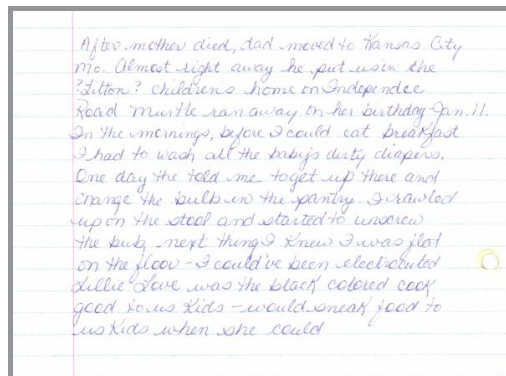 After mother died, dad moved to Kansas City
Mo. Almost right away he put us in the
? Litton ? childrens home on Independce
Road Murtle ran away on her birthday Jan. 11.
In the mornings, before I could eat breakfast
I had to wash all the baby's dirty diapers.
One day the told me to get up there and
change the bulb in the pantry. I crawled
up on the stool and started to unscrew
the bulb, next thing I knew I was flat
on the floor - I could've been electrocuted
Lillie Love was the black colored cook,
good to us kids - would sneak food to
us kids when she could